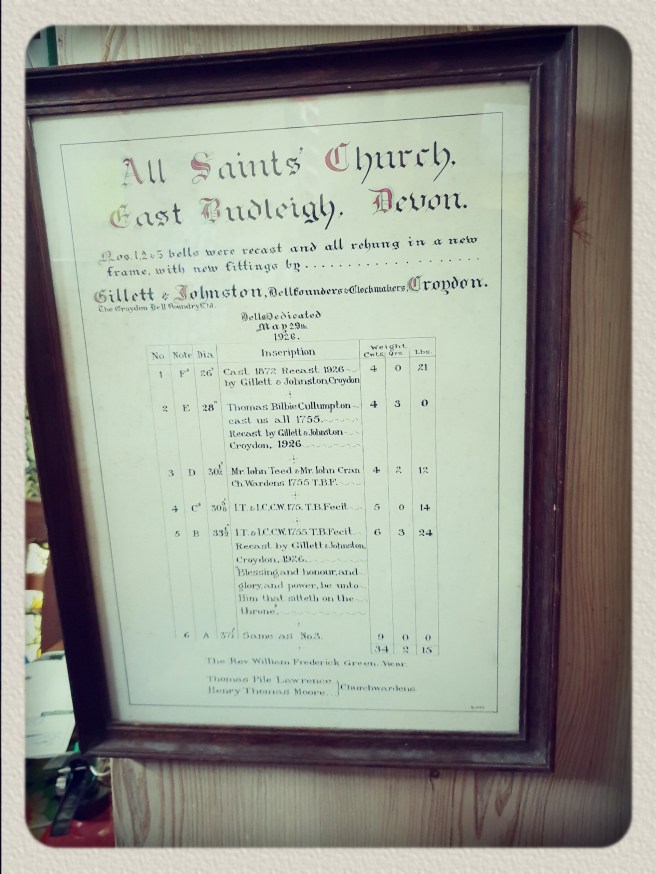 All Saints' Church.
East Budleigh. Devon.
Nos. 1, 2 & 5 bells were recast and all rehung in a new
frame, with new fittings by
Gillett & Johnston, Bellfounders & Clockmakers, Croydon.
The Croydon Bell Foundry Ltd.
Bells Dedicated
May 29th.
1926.
No. Note Dia. Inscription Weight
Cwts. Qrs. Lbs.
1 F# 26" Cast 1872 Recast 1926 4 0 21
by Gillett & Johnston, Croydon
2 E 28" Thomas Bilbie Cullumpton 4 3 0
cast us all 1755.
Recast by Gillett & Johnston
Croydon, 1926
3 D Mr. John Teed & Mr. John Cran 4 2 12
Ch. Wardens 1755 T.B.F.
4 C# I.T. & I.C.C.W. 175. T.B. Fecit 5 0 14
5 B I.T. & I.C.C.W. 1755. T.B. Fecit 6 3 24
Recast by Gillett & Johnston,
Croydon, 1926.
"Blessing, and honour, and
glory, and power, be unto
Him that sitteth on the
throne".
6 A Same as No. 3. 9 0 0
34 2 15
The Rev William Frederick Green. Vicar.
Thomas Pile Lawrence.
Henry Thomas Moore. } Churchwardens